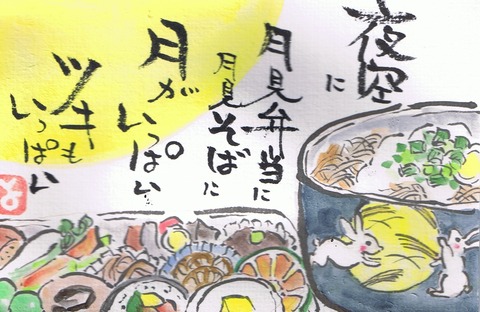 夜空に
月見弁当に
月見そばに
月が
いっぱい
ツキも
いっぱい
と